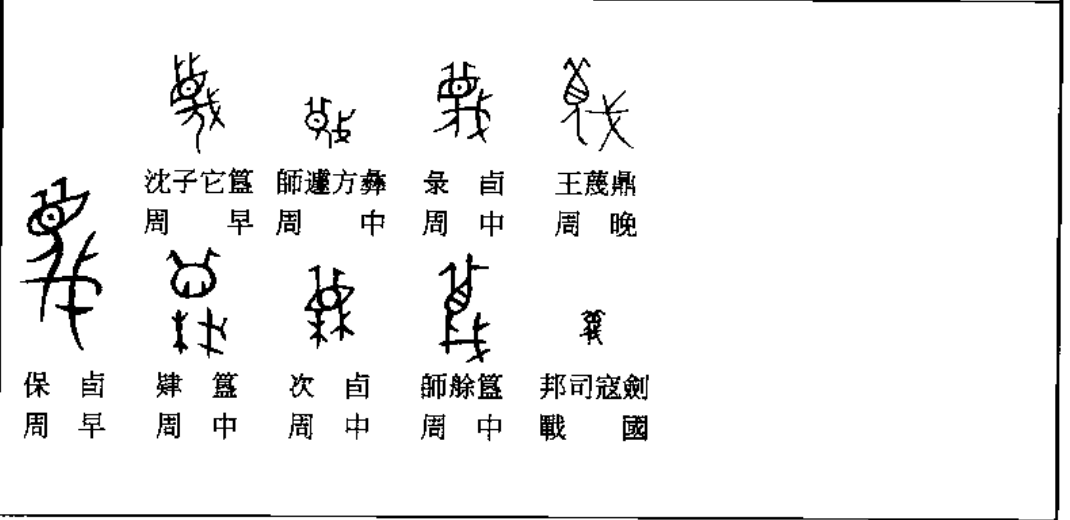 沈子它簋 師遽方彝 彔卣 王蔑鼎
周早 周中 周中 周晚
保卣 肄簋 次卣 師艅簋 邦司寇劍
周早 周中 周中 周中 戰國